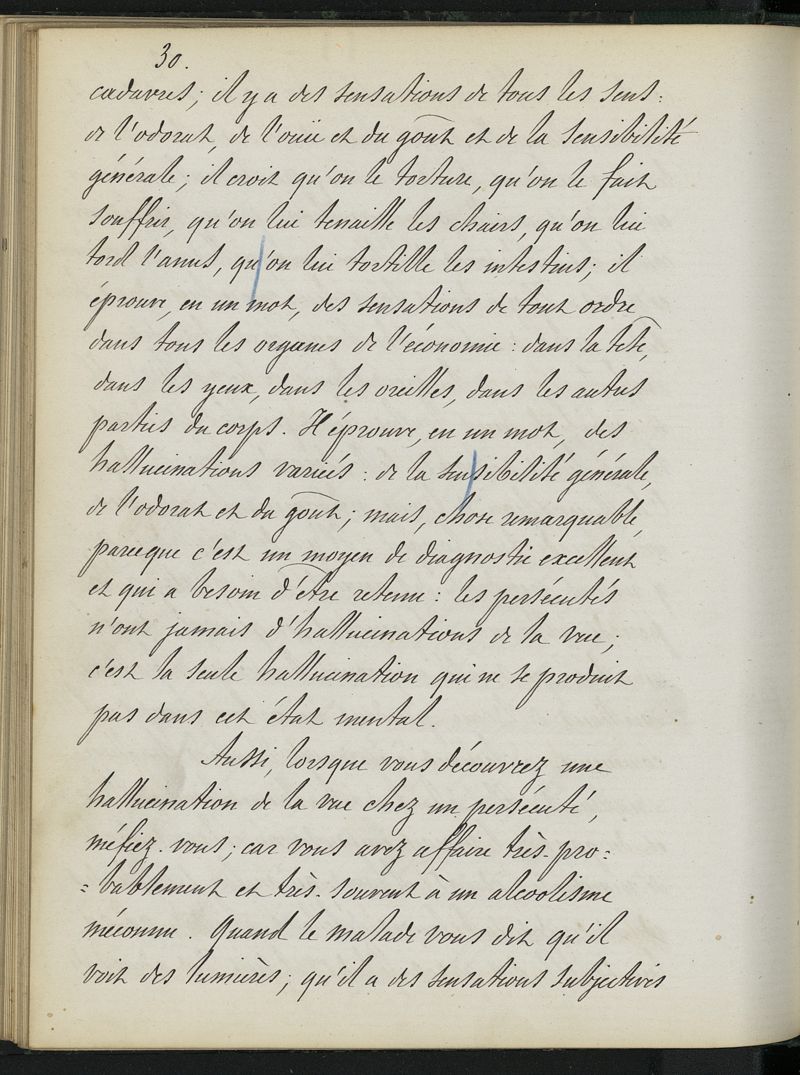 30.
cadavres; il y a des sensations de tous les sens:
de l'odorat, de l'ouïe et du goût et de la sensibilité
générale; il croit qu'on le torture, qu'on le fait
souffrir, qu'on lui tenaille les chairs, qu'on lui
tord l'anus, qu'on lui tortille les intestins; il
éprouve, en un mot, des sensations de tout ordre
dans tous les organes de l'économie: dans la tête,
dans les yeux, dans les oreilles, dans les autres
parties du corps. Il éprouve, en un mot, des
hallucinations variées: de la sensibilité générale,
de l'odorat et du goût; mais, chose remarquable,
parceque c'est un moyen de diagnostic excellent
et qui a besoin d'être retenu: les persécutés
n'ont jamais d'hallucinations de la vue;
c'est la seule hallucination qui ne se produit
pas dans cet état mental.
Aussi, lorsque vous découvrez une
hallucination de la vue chez un persécuté,
méfiez-vous; car vous avez affaire très-pro=
=bablement et très-souvent à un alcoolisme
méconnu. Quand le malade vous dit qu'il
voit des lumières; qu'il a des sensations subjectives